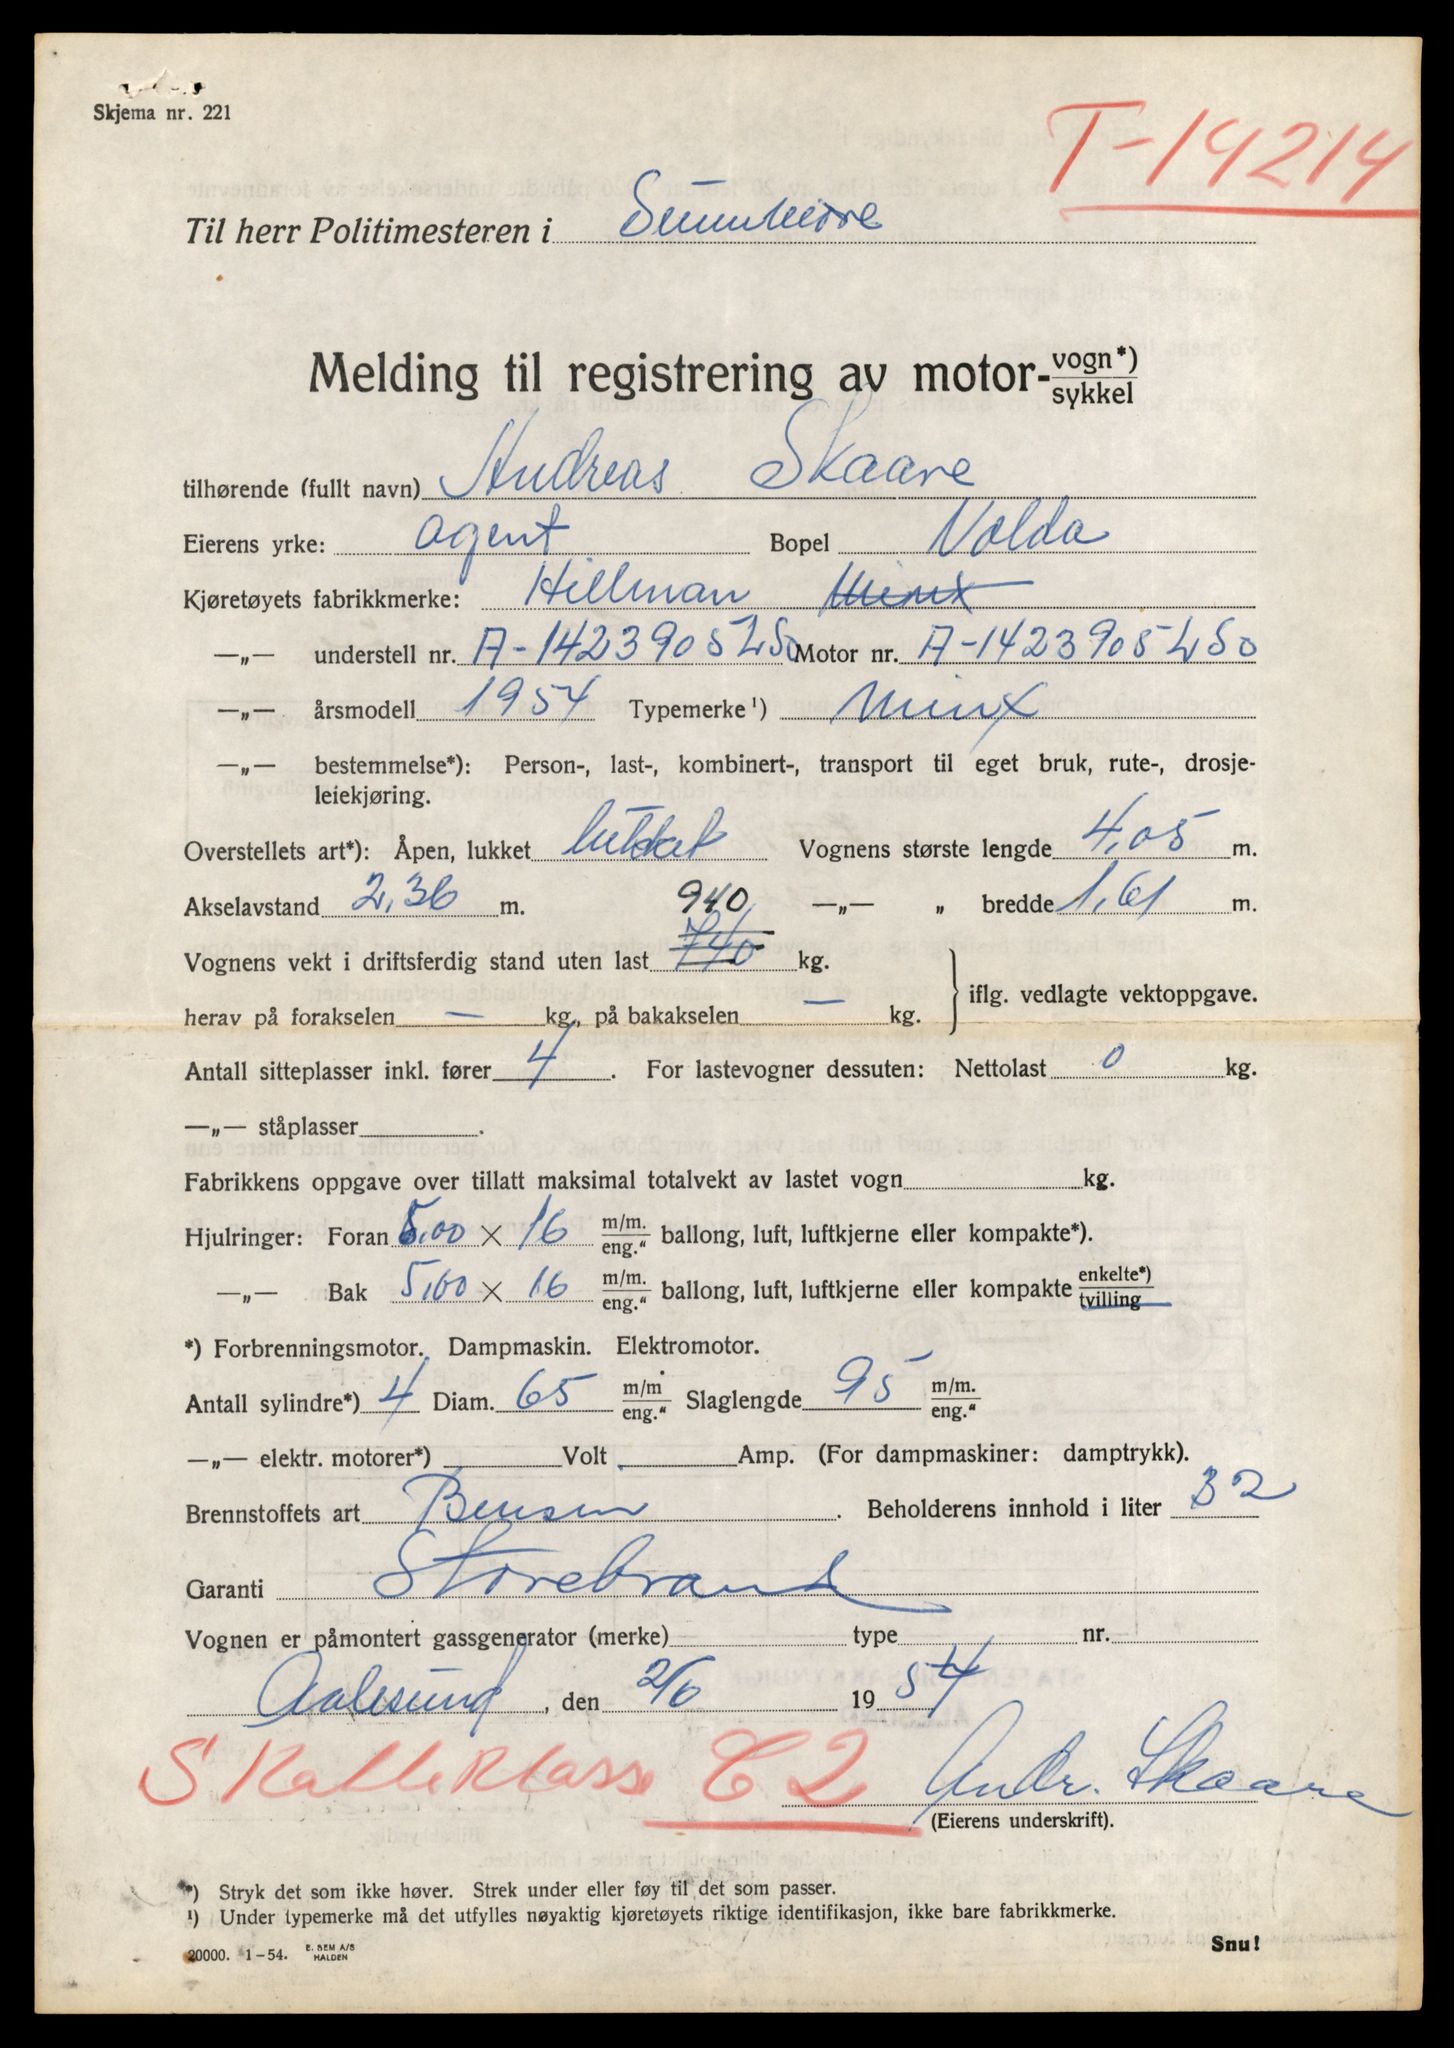 Skjema nr. 221
T-14214
Til herr Politimesteren i Sunnmøre
Melding til registrering av motor- vogn*) / sykkel
tilhørende (fullt navn) Andreas Skaare
Eierens yrke: agent Bopel Volda
Kjøretøyets fabrikkmerke: Hillman Minx
—„— understell nr. A-1423905 LSO Motor nr. A-1423905 LSO
—„— årsmodell 1954 Typemerke ¹) Minx
—„— bestemmelse*): Person-, last-, kombinert-, transport til eget bruk, rute-, drosje-
leiekjøring.
Overstellets art*): Åpen, lukket lukket Vognens største lengde 4,05 m.
Akselavstand 2,36 m. —„— „ bredde 1,61 m.
940
Vognens vekt i driftsferdig stand uten last 740 kg.
herav på forakselen — kg., på bakakselen — kg. iflg. vedlagte vektoppgave.
Antall sitteplasser inkl. fører 4. For lastevogner dessuten: Nettolast 0 kg.
—„— ståplasser .
Fabrikkens oppgave over tillatt maksimal totalvekt av lastet vogn kg.
Hjulringer: Foran 5,00 × 16 m/m. / eng.“ ballong, luft, luftkjerne eller kompakte*).
—„— Bak 5,00 × 16 m/m. / eng.“ ballong, luft, luftkjerne eller kompakte enkelte*) / tvilling
*) Forbrenningsmotor. Dampmaskin. Elektromotor.
Antall sylindre*) 4 Diam. 65 m/m / eng.“ Slaglengde 95 m/m. / eng.“
—„— elektr. motorer*) Volt Amp. (For dampmaskiner: damptrykk).
Brennstoffets art Bensin. Beholderens innhold i liter 32
Garanti Storebrand
Vognen er påmontert gassgenerator (merke) type nr.
Aalesund, den 2/6 1954
Skatteklasse C2 Andr. Skaare
(Eierens underskrift).
*) Stryk det som ikke høver. Strek under eller føy til det som passer.
¹) Under typemerke må det utfylles nøyaktig kjøretøyets riktige identifikasjon, ikke bare fabrikkmerke.
20000. 1-54. E. SEM A/S HALDEN
Snu!